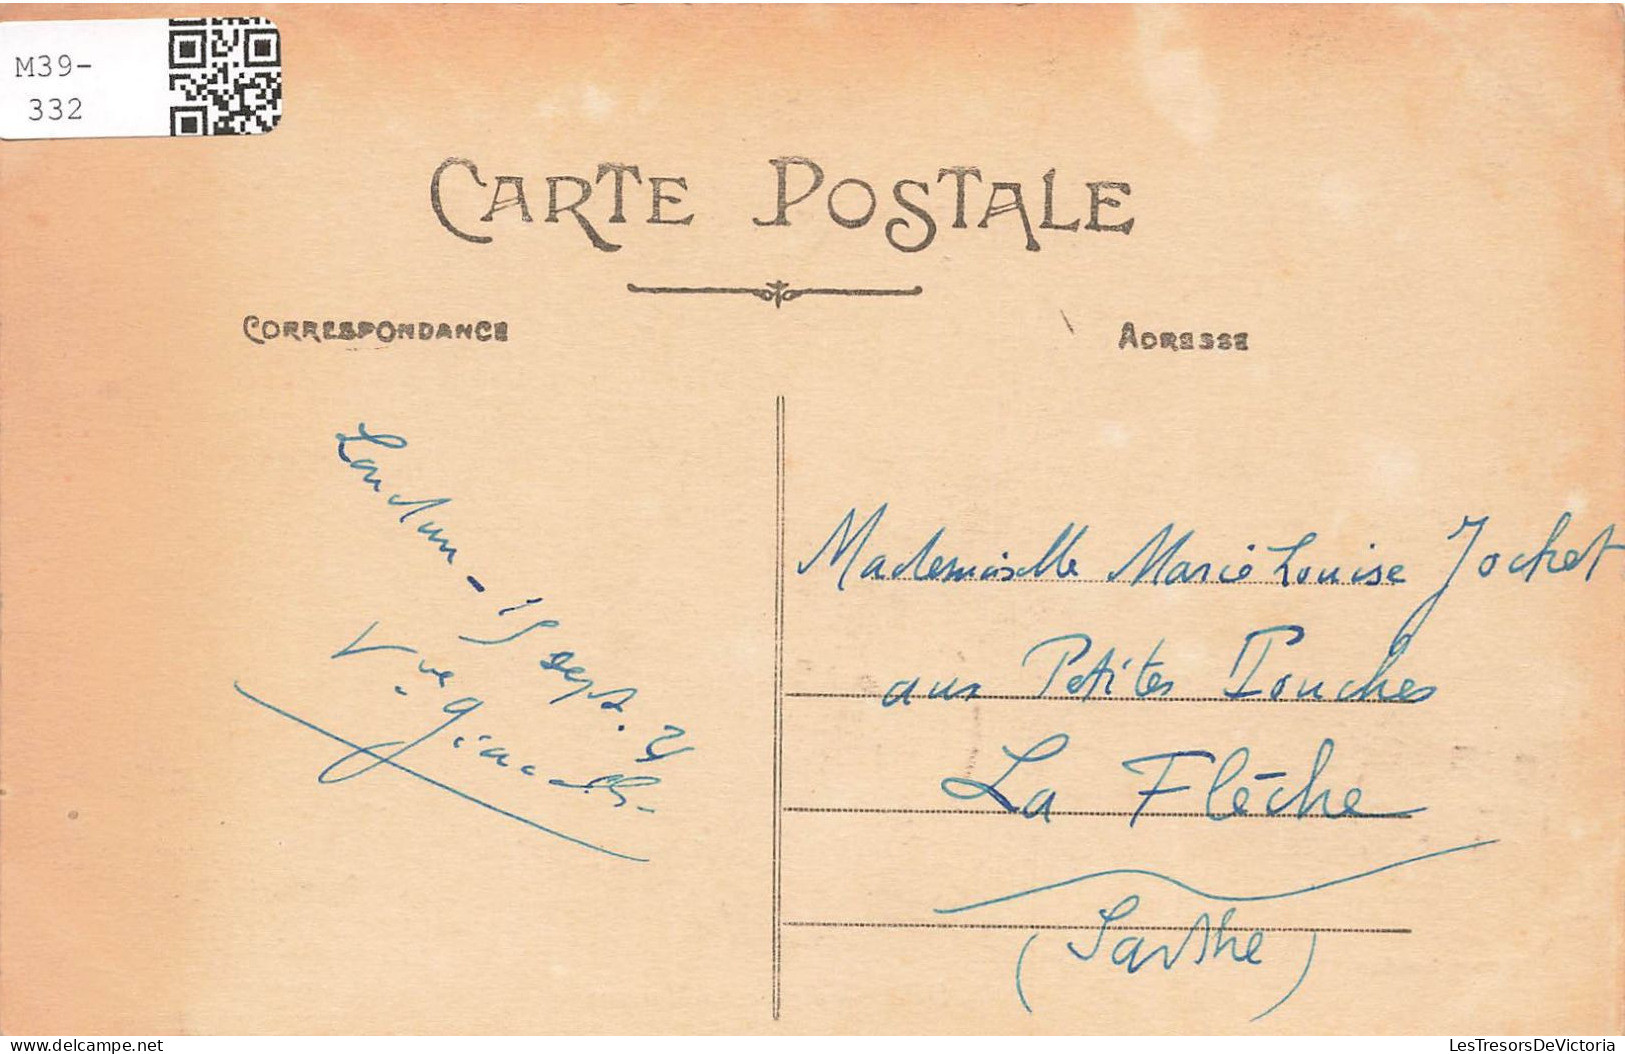 M39-
332
CARTE POSTALE
CORRESPONDANCE
ADRESSE
Loudun - 15 sept.
Vve
Mademoiselle Marie Louise Jochet
aux Petites Pouches
La Flèche
(Sarthe)
delcampe.net
LesTresorsDeVictoria